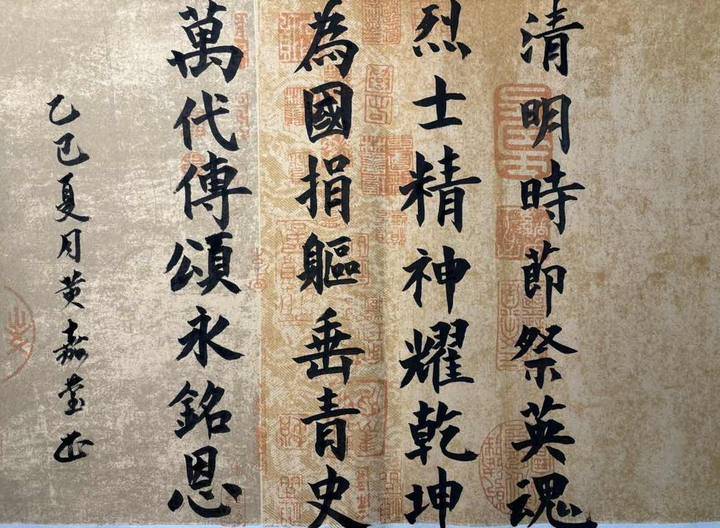 清明時節祭英魂
烈士精神耀乾坤
為國捐軀垂青史
萬代傳頌永銘恩
乙巳夏月黃嘉堂書